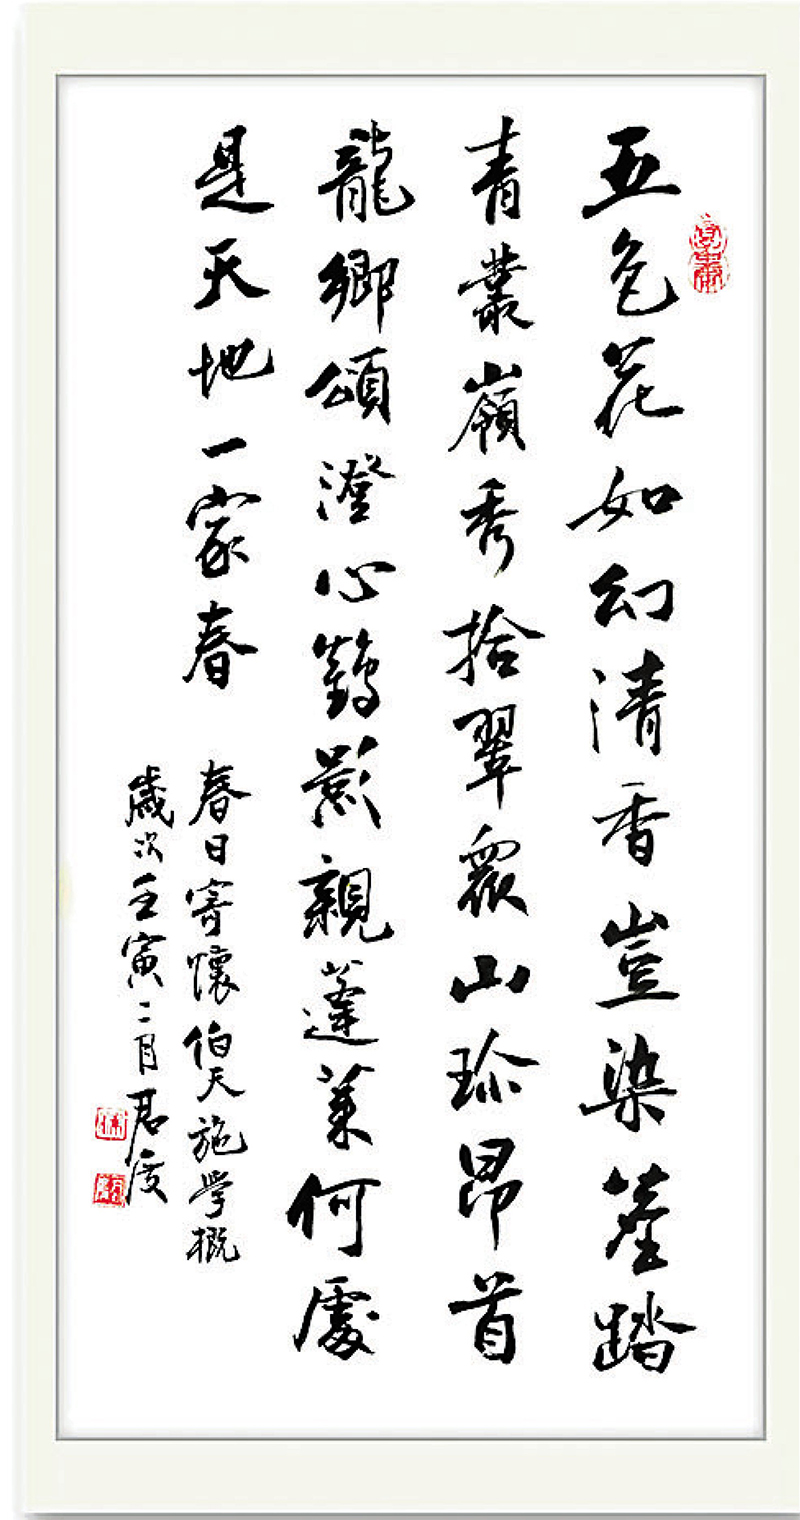 五色花如幻清香豈染塵踏
青叢嶺秀拾翠眾山珍昂首
龍鄉頌澄心鶴影親蓬萊何處
是天地一家春
春日寄懷伯天施學概
歲次壬寅二月君度